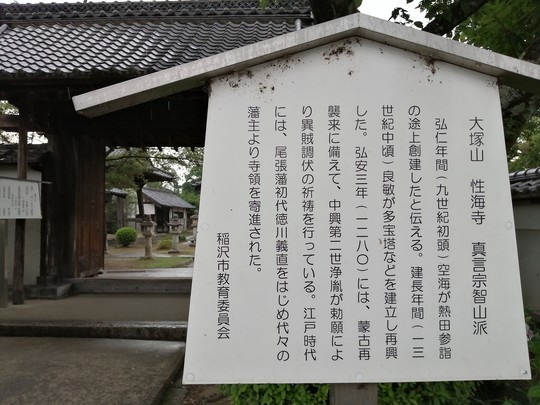 大塚山　性海寺　真言宗智山派
弘仁年間（九世紀初頭）空海が熱田参詣
の途上創建したと伝える。建長年間（一三
世紀中頃）良敏が多宝塔などを建立し再興
した。弘安三年（一二八〇）には、蒙古再
襲来に備えて、中興第二世浄胤が勅願によ
り異賊調伏の祈祷を行っている。江戸時代
には、尾張藩初代徳川義直をはじめ代々の
藩主より寺領を寄進された。
稲沢市教育委員会